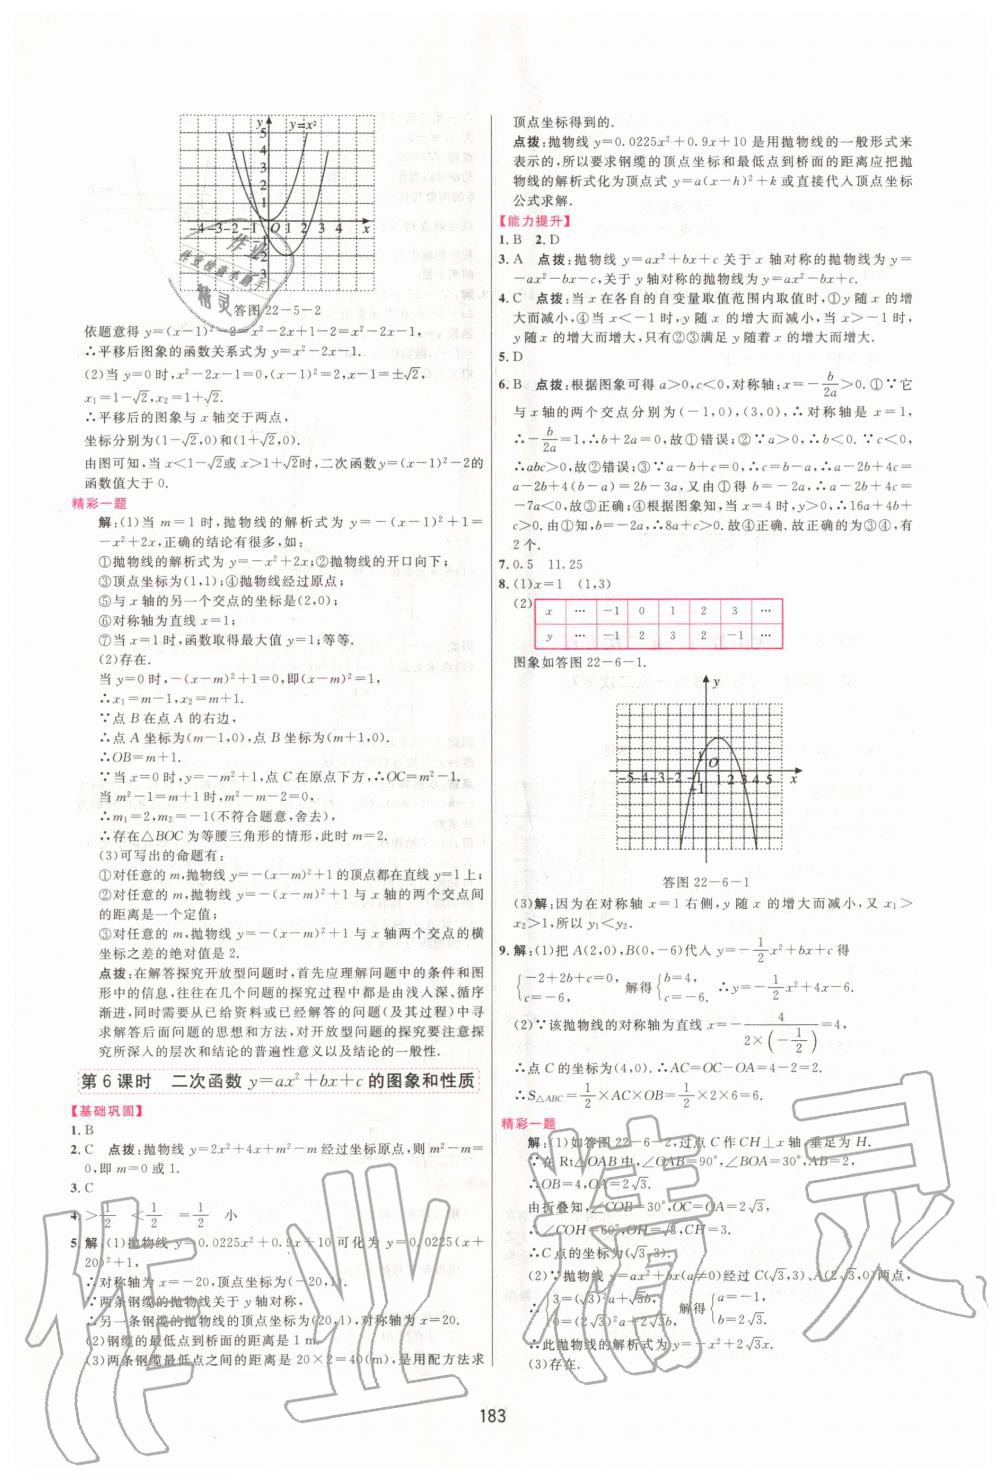 y
y=x²
5
4
3
2
1
-4 -3 -2 -1 O 1 2 3 4 x
-2
-3
答图22-5-2
依题意得y=(x-1)²-2=x²-2x+1-2=x²-2x-1,
∴平移后图象的函数关系式为y=x²-2x-1.
(2)当y=0时,x²-2x-1=0,(x-1)²=2,x-1=±√2,
x₁=1-√2,x₂=1+√2.
∴平移后的图象与x轴交于两点,
坐标分别为(1-√2,0)和(1+√2,0).
由图可知,当x<1-√2或x>1+√2时,二次函数y=(x-1)²-2的
函数值大于0.
精彩一题
解:(1)当m=1时,抛物线的解析式为y=-(x-1)²+1=
-x²+2x,正确的结论有很多,如:
①抛物线的解析式为y=-x²+2x;②抛物线的开口向下;
③顶点坐标为(1,1);④抛物线经过原点;
⑤与x轴的另一个交点的坐标是(2,0);
⑥对称轴为直线x=1;
⑦当x=1时,函数取得最大值y=1;等等.
(2)存在.
当y=0时,-(x-m)²+1=0,即(x-m)²=1,
∴x₁=m-1,x₂=m+1.
∵点B在点A的右边,
∴点A坐标为(m-1,0),点B坐标为(m+1,0).
∴OB=m+1.
∵当x=0时,y=-m²+1,点C在原点下方,∴OC=m²-1.
当m²-1=m+1时,m²-m-2=0,
∴m₁=2,m₂=-1(不符合题意,舍去)
∴存在△BOC为等腰三角形的情形,此时m=2.
(3)可写出的命题有:
①对任意的m,抛物线y=-(x-m)²+1的顶点都在直线y=1上;
②对任意的m,抛物线y=-(x-m)²+1与x轴的两个交点间
的距离是一个定值;
③对任意的m,抛物线y=-(x-m)²+1与x轴两个交点的横
坐标之差的绝对值是2.
点拨:在解答探究开放型问题时,首先应理解问题中的条件和图
形中的信息,往往在几个问题的探究过程中都是由浅入深、循序
渐进,同时需要从已给资料或已经解答的问题(及其过程)中寻
求解答后面问题的思想和方法,对开放型问题的探究要注意探
究所深入的层次和结论的普遍性意义以及结论的一般性.
第6课时 二次函数y=ax²+bx+c的图象和性质
【基础巩固】
1.B
2.C 点拨:抛物线y=2x²+4x+m²-m经过坐标原点,则m²-m=
0,即m=0或1.
3.C
4.>1/2 <1/2 =1/2 小
5.解:(1)抛物线y=0.0225x²+0.9x+10可化为y=0.0225(x+
20)²+1,
∴对称轴为x=-20,顶点坐标为(-20,1).
∵两条钢缆的抛物线关于y轴对称,
∴另一条钢缆的抛物线的顶点坐标为(20,1),对称轴为x=20.
(2)钢缆的最低点到桥面的距离是1m.
(3)两条钢缆最低点之间的距离是20×2=40(m),是用配方法求
顶点坐标得到的.
点拨:抛物线y=0.0225x²+0.9x+10是用抛物线的一般形式来
表示的,所以要求钢缆的顶点坐标和最低点到桥面的距离应把抛
物线的解析式化为顶点式y=a(x-h)²+k或直接代入顶点坐标
公式求解.
【能力提升】
1.B 2.D
3.A 点拨:抛物线y=ax²+bx+c关于x轴对称的抛物线为y=
-ax²-bx-c,关于y轴对称的抛物线为y=ax²-bx+c.
4.C 点拨:当x在各自的自变量取值范围内取值时,①y随x的增
大而减小,④当x<-1时,y随x的增大而减小,当x>-1时,
y随x的增大而增大,只有②③满足y随着x的增大而增大.
5.D
6.B 点拨:根据图象可得a>0,c<0,对称轴:x=-b/2a>0.①∵它
与x轴的两个交点分别为(-1,0),(3,0),∴对称轴是x=1,
∴-b/2a=1,∴b+2a=0,故①错误;②∵a>0,∴b<0.∵c<0,
∴abc>0,故②错误;③∵a-b+c=0,∴c=b-a,∴a-2b+4c=
a-2b+4(b-a)=2b-3a,又由①得b=-2a,∴a-2b+4c=
-7a<0,故③正确;④根据图象知,当x=4时,y>0,∴16a+4b+
c>0.由①知,b=-2a,∴8a+c>0.故④正确.故正确为③④,有
2个.
7.0.5 11.25
8.(1)x=1 (1,3)
(2)
x … -1 0 1 2 3 …
y … -1 2 3 2 -1 …
图象如答图22-6-1.
y
1
O
-5-4-3-2-1 1 2 3 4 5 x
-1
答图22-6-1
(3)解:因为在对称轴x=1右侧,y随x的增大而减小,又x₁>
x₂>1,所以y₁<y₂.
9.解:(1)把A(2,0),B(0,-6)代入y=-1/2x²+bx+c得
{-2+2b+c=0, c=-6, 解得{b=4, c=-6. ∴y=-1/2x²+4x-6.
(2)∵该抛物线的对称轴为直线x=-4/(2×(-1/2))=4,
∴点C的坐标为(4,0).∴AC=OC-OA=4-2=2.
∴S△ABC=1/2×AC×OB=1/2×2×6=6.
精彩一题
解:(1)如答图22-6-2,过点C作CH⊥x轴,垂足为H.
∵在Rt△OAB中,∠OAB=90°,∠BOA=30°,AB=2,
∴OB=4,OA=2√3.
由折叠知,∠COB=30°,OC=OA=2√3.
∴∠COH=60°,OH=√3,CH=3.
∴C点的坐标为(√3,3).
(2)∵抛物线y=ax²+bx(a≠0)经过C(√3,3)、A(2√3,0)两点,
∴{3=(√3)²a+√3b, 0=(2√3)²a+2√3b, 解得{a=-1, b=2√3.
∴此抛物线的解析式为y=-x²+2√3x.
(3)存在.
183
作业精灵